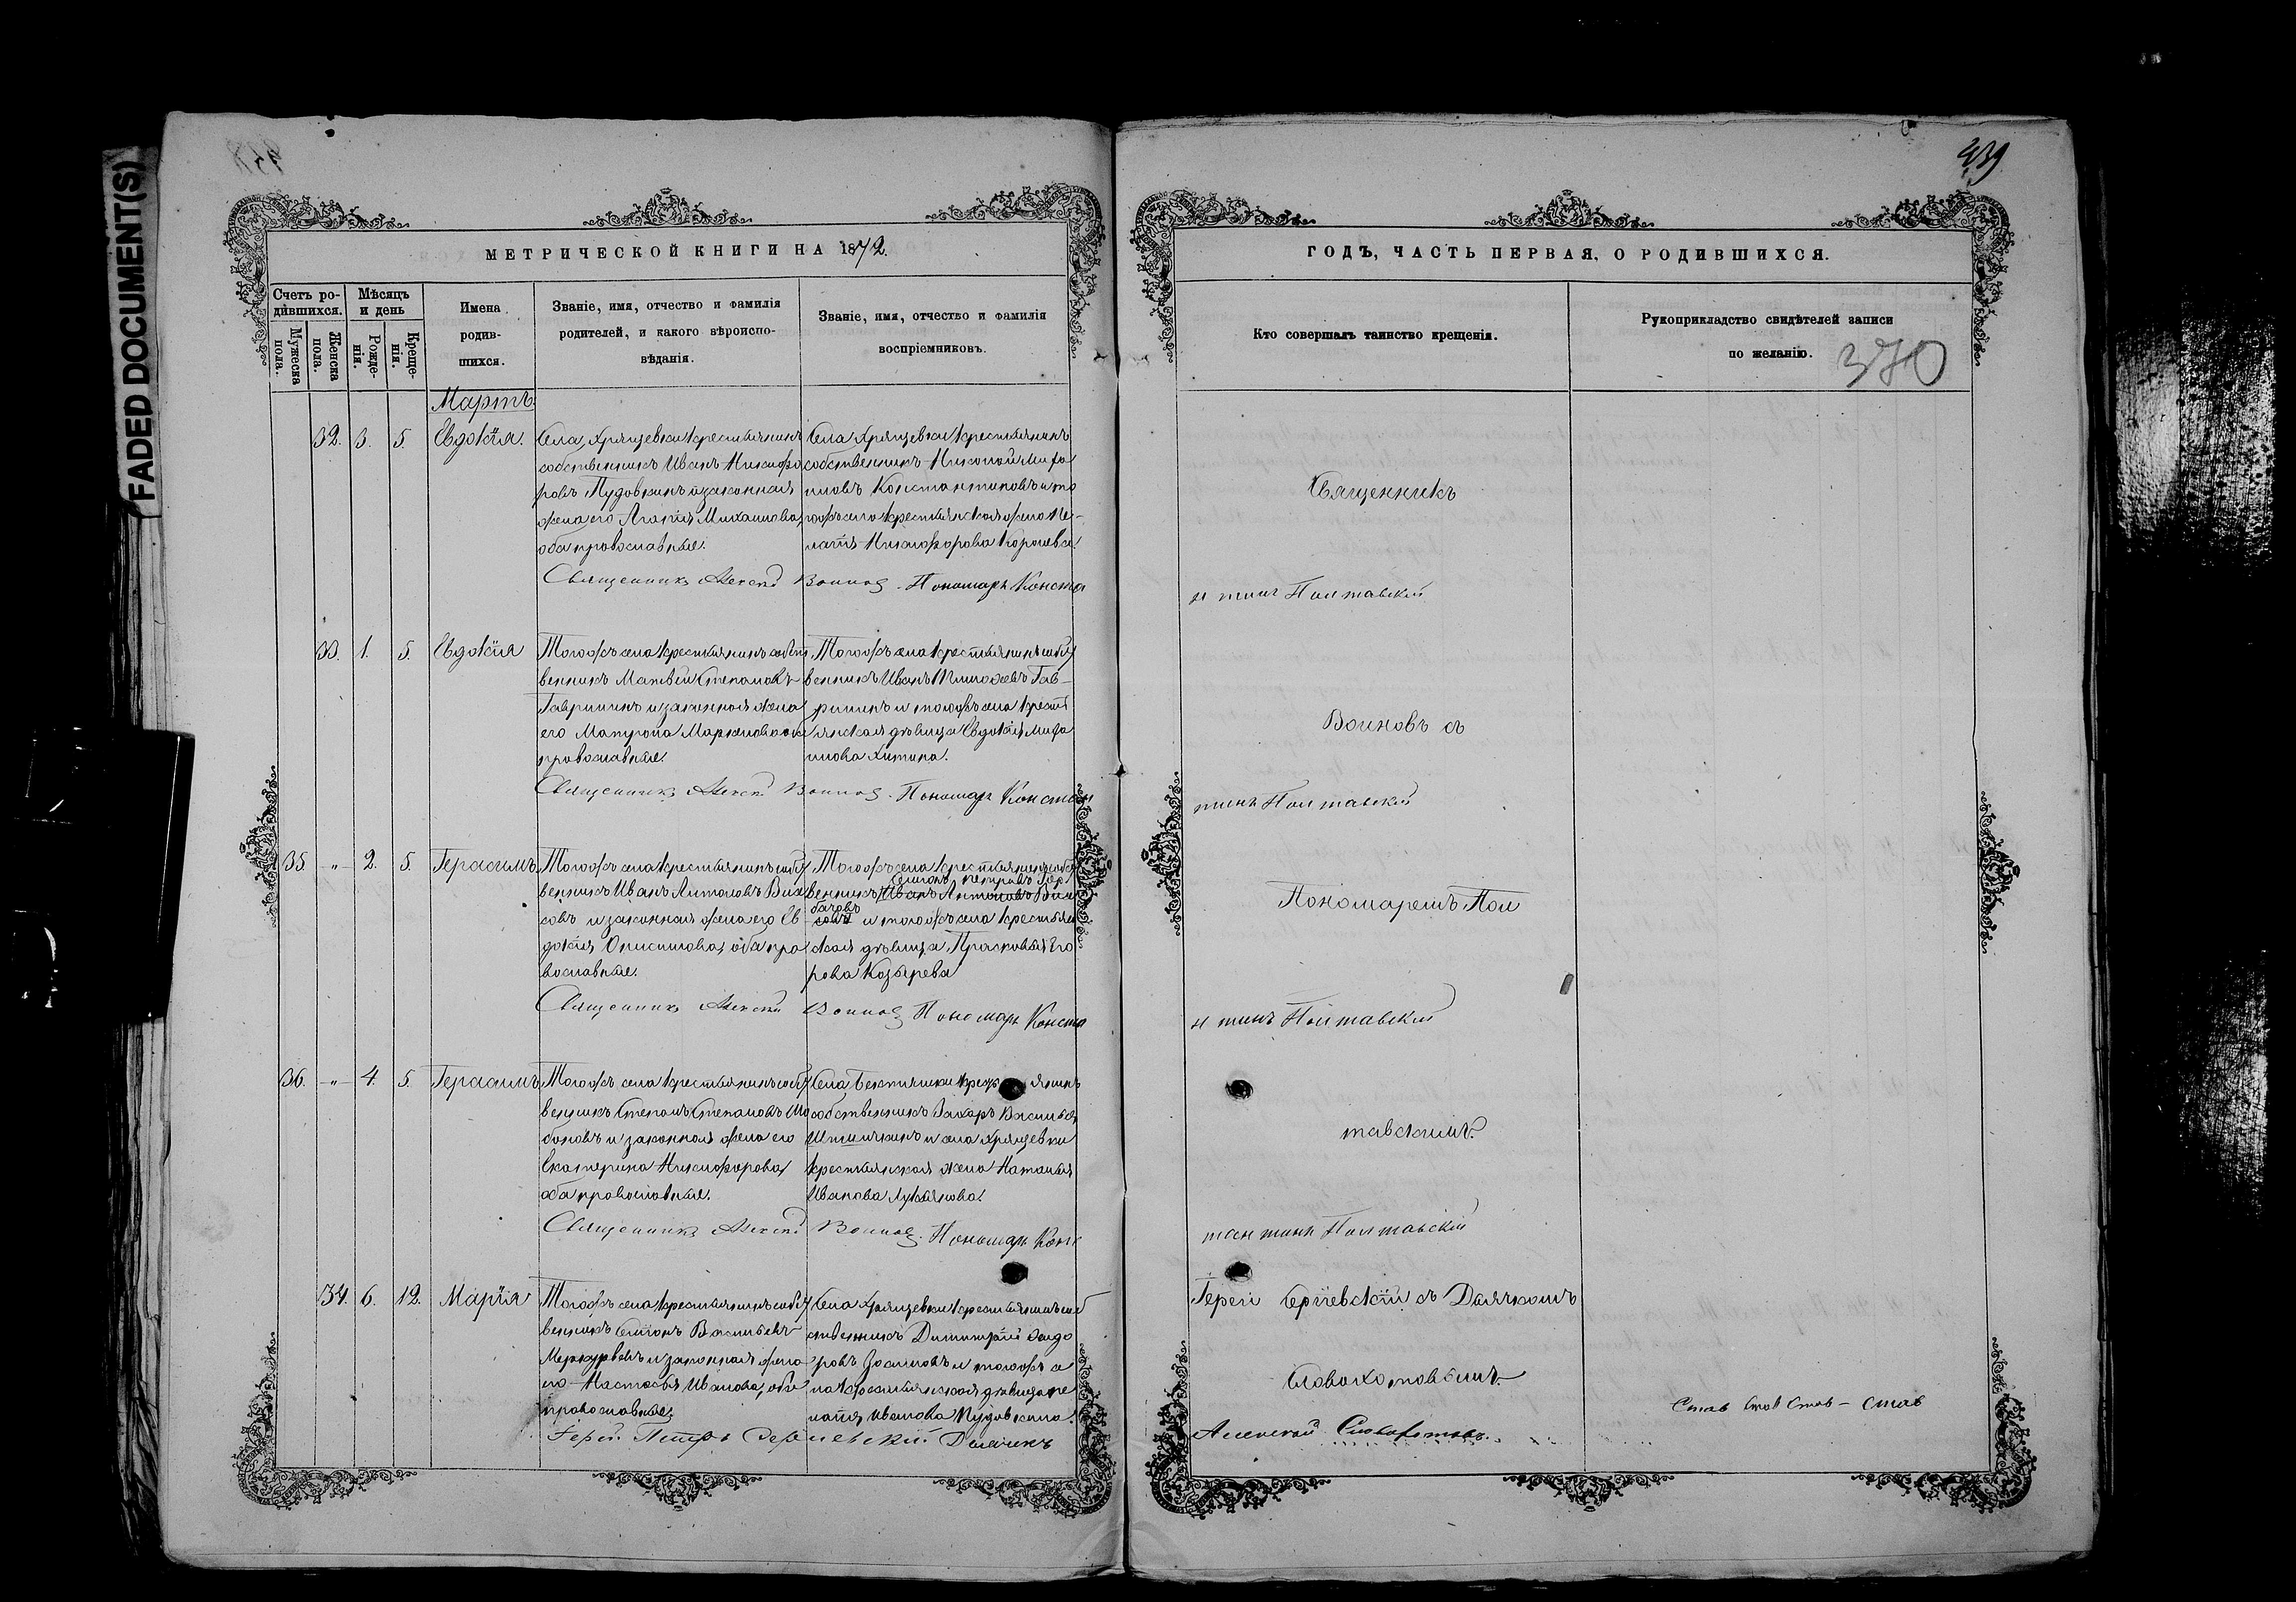 FADED DOCUMENT(S)
439
МЕТРИЧЕСКОЙ КНИГИ НА 1872.
ГОДЪ, ЧАСТЬ ПЕРВАЯ, О РОДИВШИХСЯ.
Счетъ ро-
дившихся.
Мужеска
пола.
Женска
пола.
Мѣсяцъ
и день
Рожде-
нія.
Креще-
нія.
Имена
родив-
шихся.
Званіе, имя, отчество и фамилія
родителей, и какого вѣроиспо-
вѣданія.
Званіе, имя, отчество и фамилія
воспріемниковъ.
Кто совершалъ таинство крещенія.
Рукоприкладство свидѣтелей записи
по желанію.
370
Мартъ
32. 3. 5. Евдокія.
Села Хрящевки крестьянинъ
собственникъ Иванъ Никифо
ровъ Пудовкинъ и законная
жена его Агапія Михаилова,
оба православные.
Села Хрящевки крестьянинъ
собственникъ
Константиновъ и то
гожъ села крестьянская жена Пе-
лагія Никифорова
Священникъ
Священникъ Алексѣй Воиновъ. Пономарь Конста
нтинъ Полтавскій
33. 1. 5. Евдокія
Тогожъ села крестьянинъ собст
венникъ Матвѣй Степановъ
Гавринин и законная жена
его Матрона Маркелова оба
православные.
Тогожъ села крестьянинъ собст
венникъ Иванъ Тимофеевъ Гав-
рининъ и тогожъ села кресть
янская дѣвица Евдокія
Хитина.
Воиновъ съ
Священникъ Алексѣй Воиновъ. Пономарь Констан
тинъ Полтавскій
35. -"- 2. 5. Герасимъ
Тогожъ села крестьянинъ собст
венникъ Иванъ Антоновъ
совъ и законная жена его Ев
докія Онисимова, оба пра
вославные.
Тогожъ села крестьянинъ собст
Симонъ Петровъ
венникъ Иванъ Антоновъ
и тогожъ села крестьян
ская дѣвица Прасковья Его
рова Козырева
Пономаремъ Пол
Священникъ Алексѣй Воиновъ Пономарь Конста
нтинъ Полтавскій
36. -"- 4. 5. Герасимъ
Тогожъ села крестьянинъ собст
венникъ Степанъ Степановъ
и законная жена его
Екатерина Никифорова,
оба православные.
Села
собственникъ Захаръ Васильев
и села Хрящевки
крестьянская жена Наталья
Иванова Лукьянова.
тавскимъ.
Священникъ Алексѣй Воиновъ. Пономарь Конс
тантинъ Полтавскій
34. 6. 12. Марія
Тогожъ села крестьянинъ собст
венникъ Симонъ Васильевъ
и законная жена
его Настасья Иванова, оба
православные.
Села Хрящевки крестьянинъ соб
ственникъ Димитрій Ѳедо
ровъ и тогожъ се
ла крестьянская дѣвица Пе
лагія Иванова Пудовкина.
Іерей Сергіевскій съ Дьячкомъ
Словохотовымъ.
Іерей Петръ Сергіевскій Дьячекъ
Алексѣй Словохотовъ.